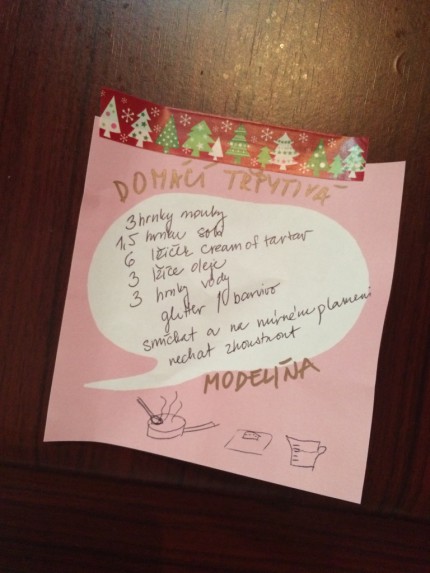 DOMAČÍ TŘPYTIVÁ
3 hrnky mouky
1,5 hrnku soli
6 lžiček cream of tartar
3 lžíce oleje
3 hrnky vody
glitter / barvivo
smíchat a na mírném plameni
nechat zhoustnout
MODELÍNA